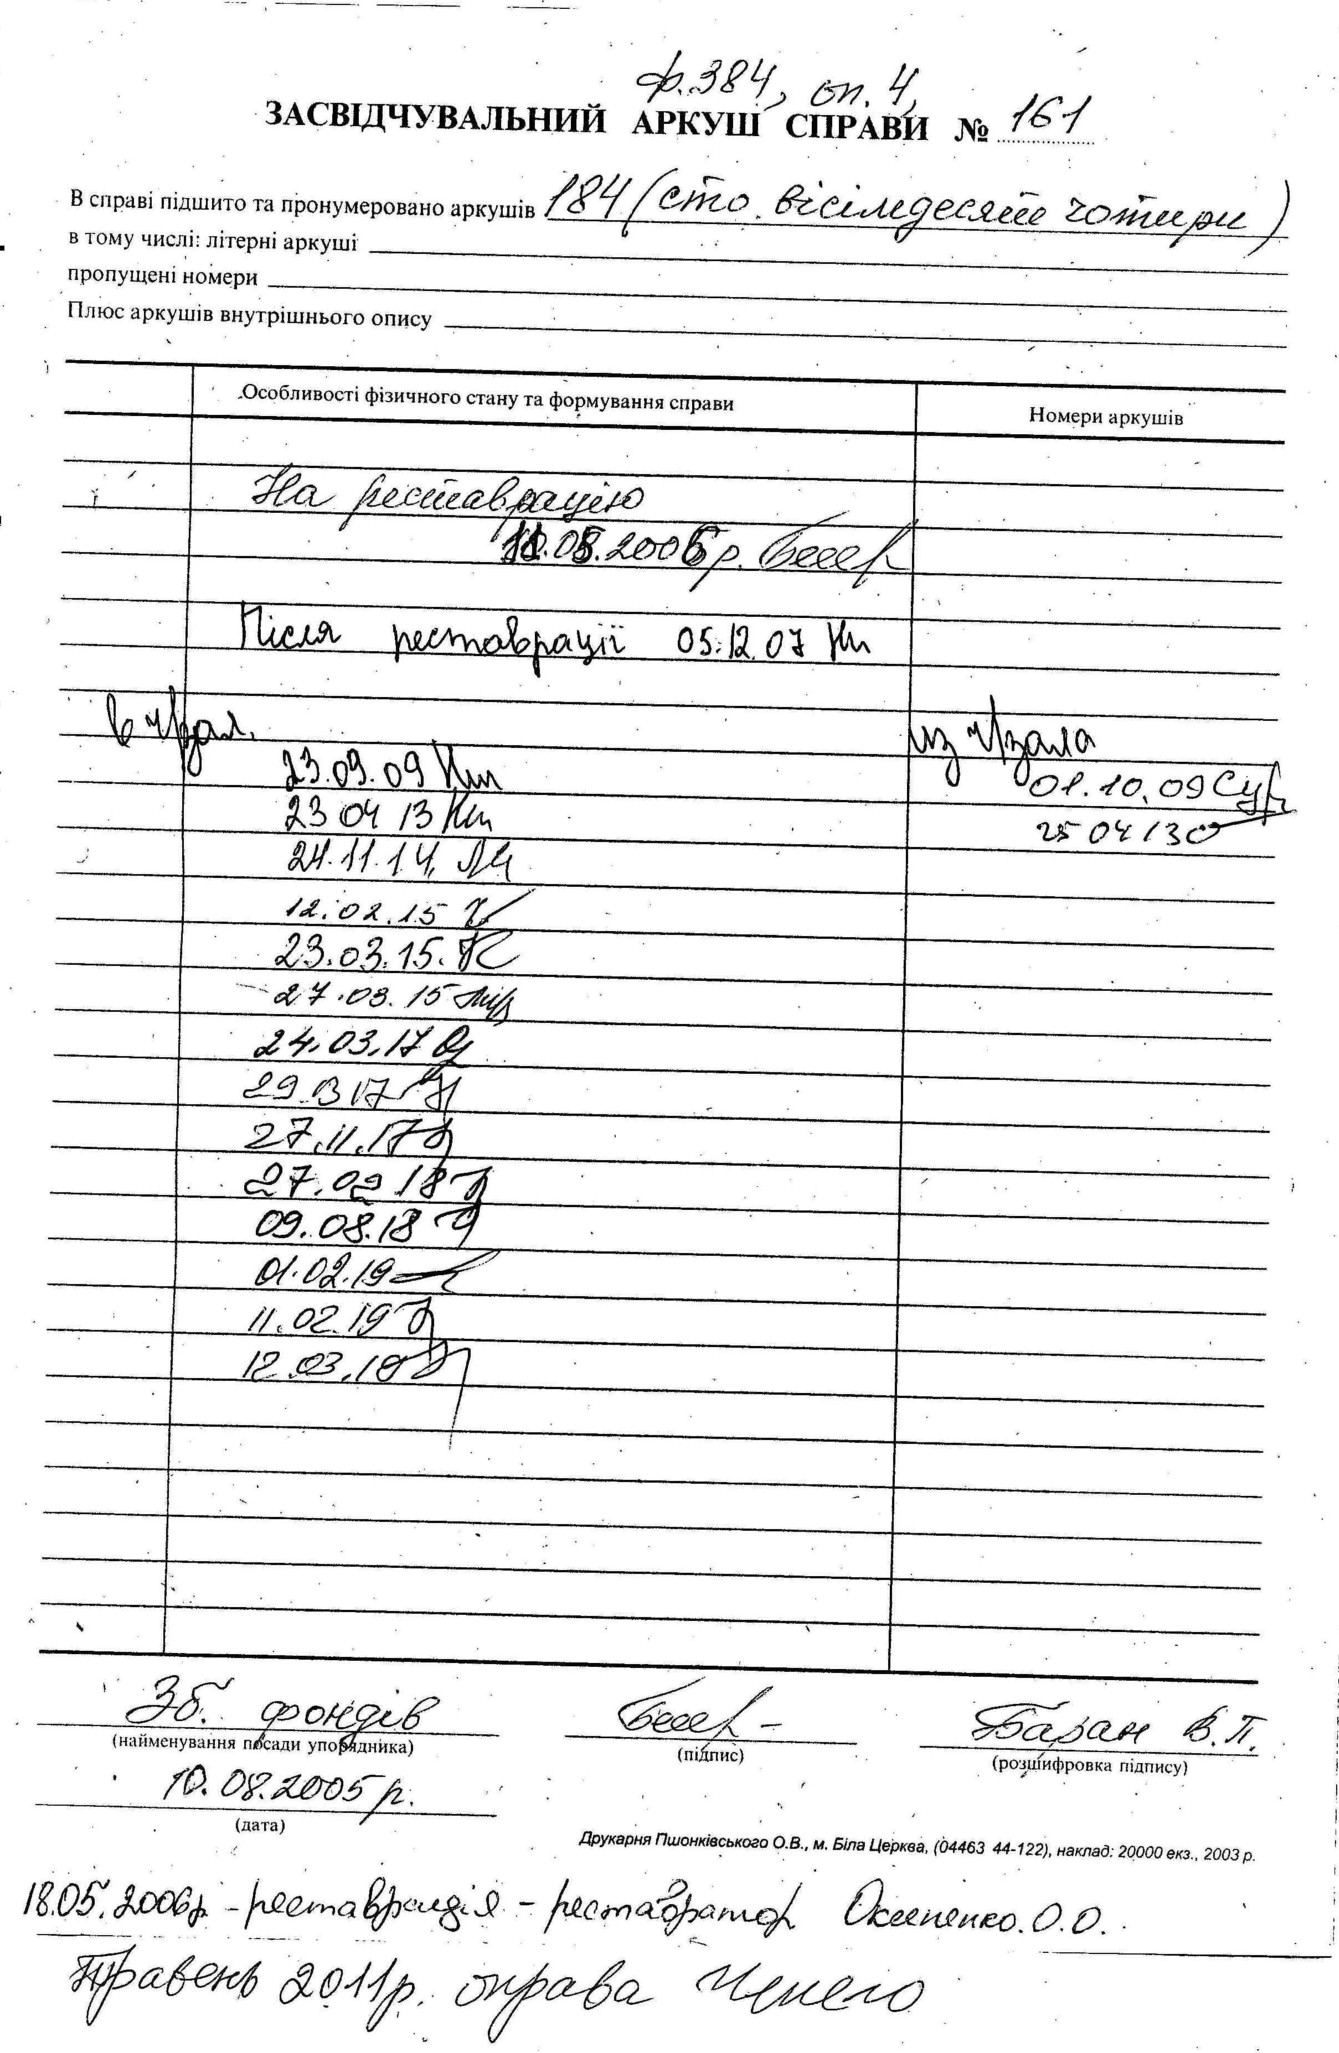 ф.384, оп. 4,
ЗАСВІДЧУВАЛЬНИЙ АРКУШ СПРАВИ № 161
В справі підшито та пронумеровано аркушів 184 (сто вісімдесят чотири)
в тому числі: літерні аркуші
пропущені номери
Плюс аркушів внутрішнього опису
Особливості фізичного стану та формування справи Номери аркушів
На реставрацію
.2006 р.
Після реставрації 05.12.07
в ч/зал. из ч/зала
23.09.09 01.10.09
23 04 13 25 04 13
24.11.14.
12.02.15
23.03.15.
27.03.15
24.03.17
29.03 17
27.11.17
27.02 18
09.08.18
01.02.19
11.02.19
12.03.19
Зб. фондів Баран В.П.
(найменування посади упорядника) (підпис) (розшифровка підпису)
10.08.2005 р.
(дата)
Друкарня Пшонківського О.В., м. Біла Церква, (04463 44-122), наклад: 20000 екз., 2003 р.
18.05.2006р. - реставрація - реставратор О.О.
Травень 2011р. оправа